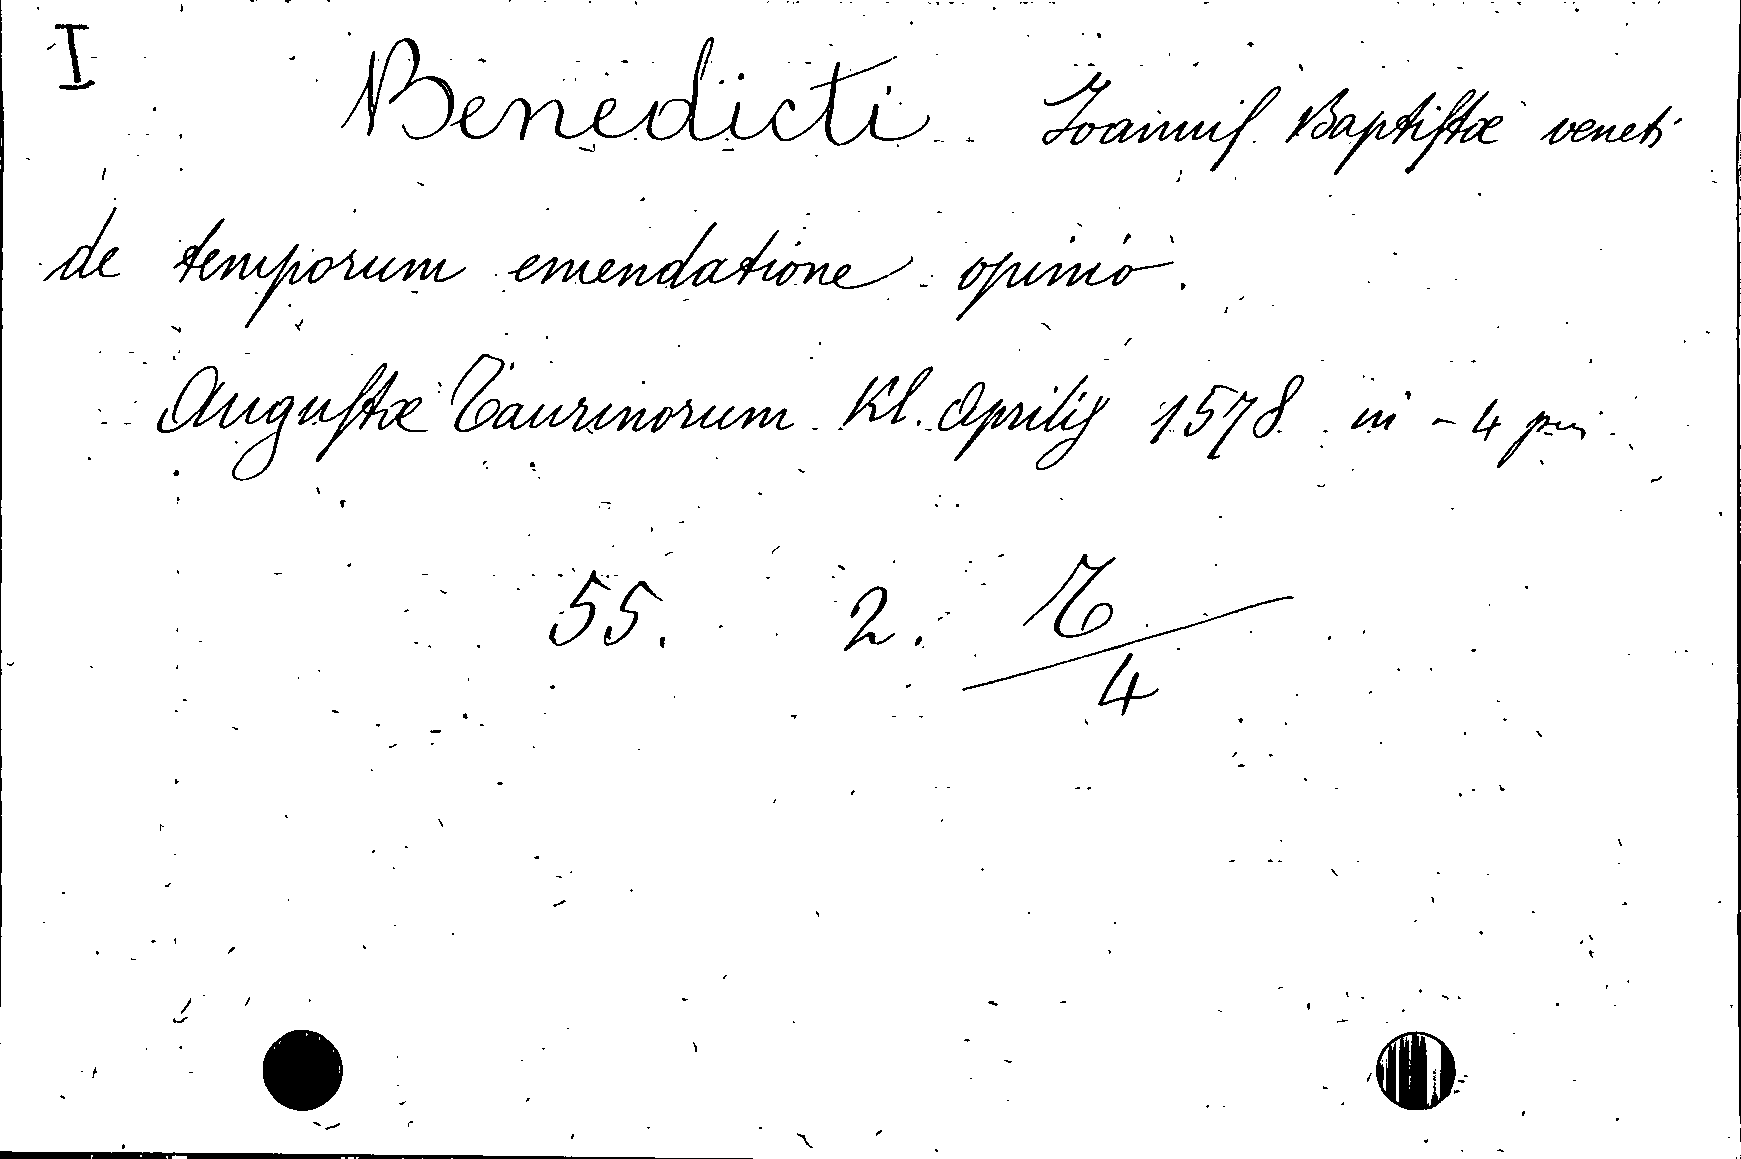 I
Benedicti Ioannis Baptistæ veneti
de temporum emendatione opinio.
Augustæ Taurinorum Kl. Aprilis 1578 in - 4 pm
55. 2. T/4